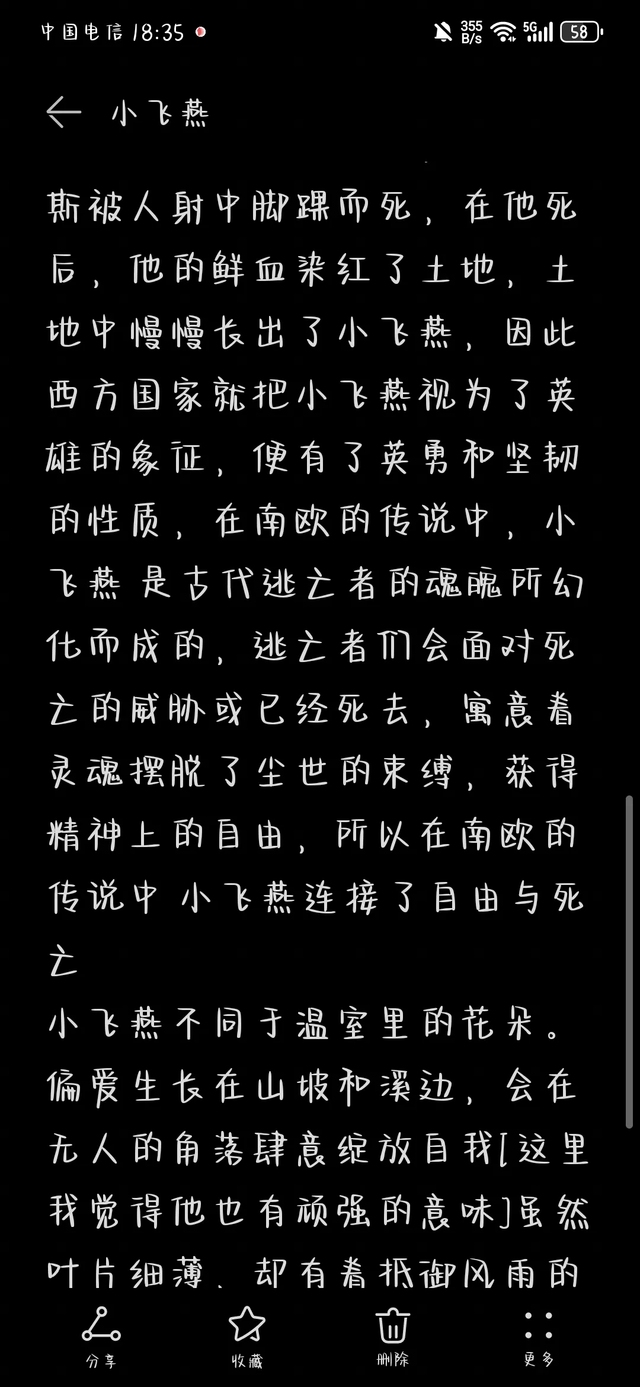 中国电信 18:35 355 B/s 5G 58
小飞燕
斯被人射中脚踝而死，在他死
后，他的鲜血染红了土地，土
地中慢慢长出了小飞燕，因此
西方国家就把小飞燕视为了英
雄的象征，便有了英勇和坚韧
的性质，在南欧的传说中，小
飞燕 是古代逃亡者的魂魄所幻
化而成的，逃亡者们会面对死
亡的威胁或已经死去，寓意着
灵魂摆脱了尘世的束缚，获得
精神上的自由，所以在南欧的
传说中 小飞燕连接了自由与死
亡
小飞燕不同于温室里的花朵。
偏爱生长在山坡和溪边，会在
无人的角落肆意绽放自我[这里
我觉得他也有顽强的意味]虽然
叶片细薄、却有着抵御风雨的
分享 收藏 删除 更多